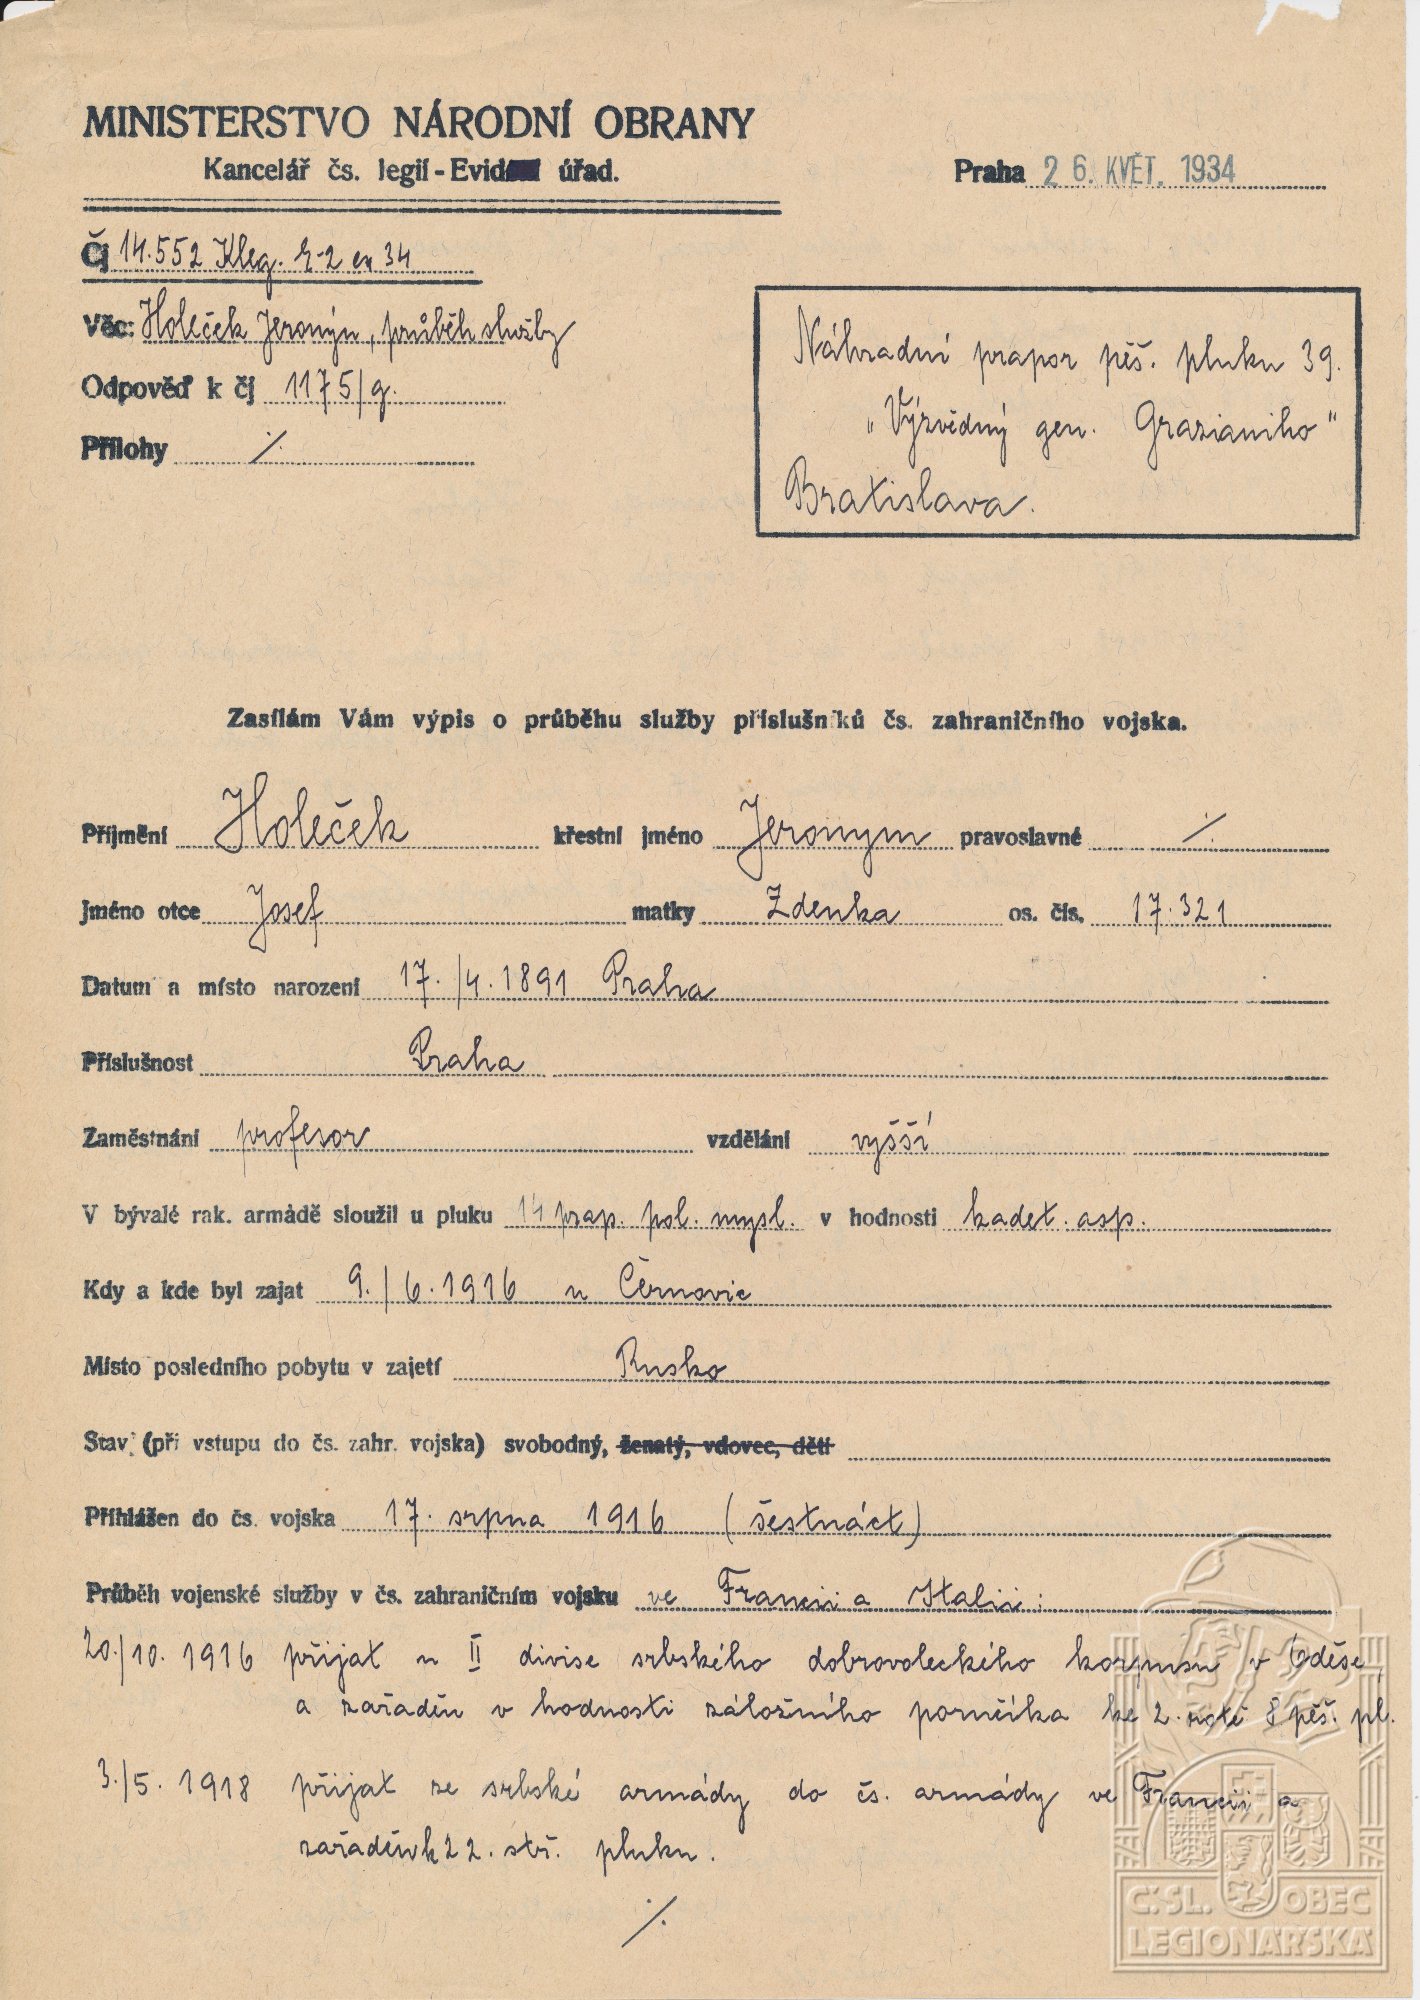 MINISTERSTVO NÁRODNÍ OBRANY
Kancelář čs. legií - Evid úřad.
Praha 26. KVĚT. 1934
Čj 14.552 Kleg. E-2 ex 34
Věc: Holeček Jeroným, průběh služby
Odpověď k čj 1175/g.
Přílohy ./.
Náhradní prapor pěš. pluku 39.
„Výzvědný gen. Grazianiho“
Bratislava.
Zasílám Vám výpis o průběhu služby příslušníků čs. zahraničního vojska.
Příjmení Holeček křestní jméno Jeronym pravoslavné ./.
Jméno otce Josef matky Zdenka os. čís. 17.321
Datum a místo narození 17./4. 1891 Praha
Příslušnost Praha
Zaměstnání profesor vzdělání vyšší
V bývalé rak. armádě sloužil u pluku 14 prap. pol. mysl. v hodnosti kadet. asp.
Kdy a kde byl zajat 9./6. 1916 u Černovic
Místo posledního pobytu v zajetí Rusko
Stav (při vstupu do čs. zahr. vojska) svobodný, ženatý, vdovec, děti
Přihlášen do čs. vojska 17. srpna 1916 (šestnáct)
Průběh vojenské služby v čs. zahraničním vojsku ve Francii a Italii:
20./10. 1916 přijat u II divise srbského dobrovoleckého korpusu v Oděse,
a zařaděn v hodnosti záložního poručíka ke 2. rotě 8 pěš. pl.
3./5. 1918 přijat ze srbské armády do čs. armády ve Francii a
zařaděn k 22. stř. pluku.
./.
Č.SL. OBEC
LEGIONÁŘSKÁ